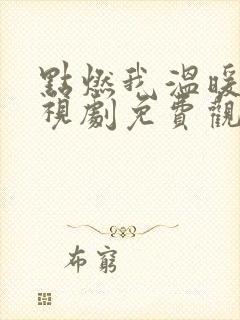 點燃我溫暖
視劇免費觀
布窮